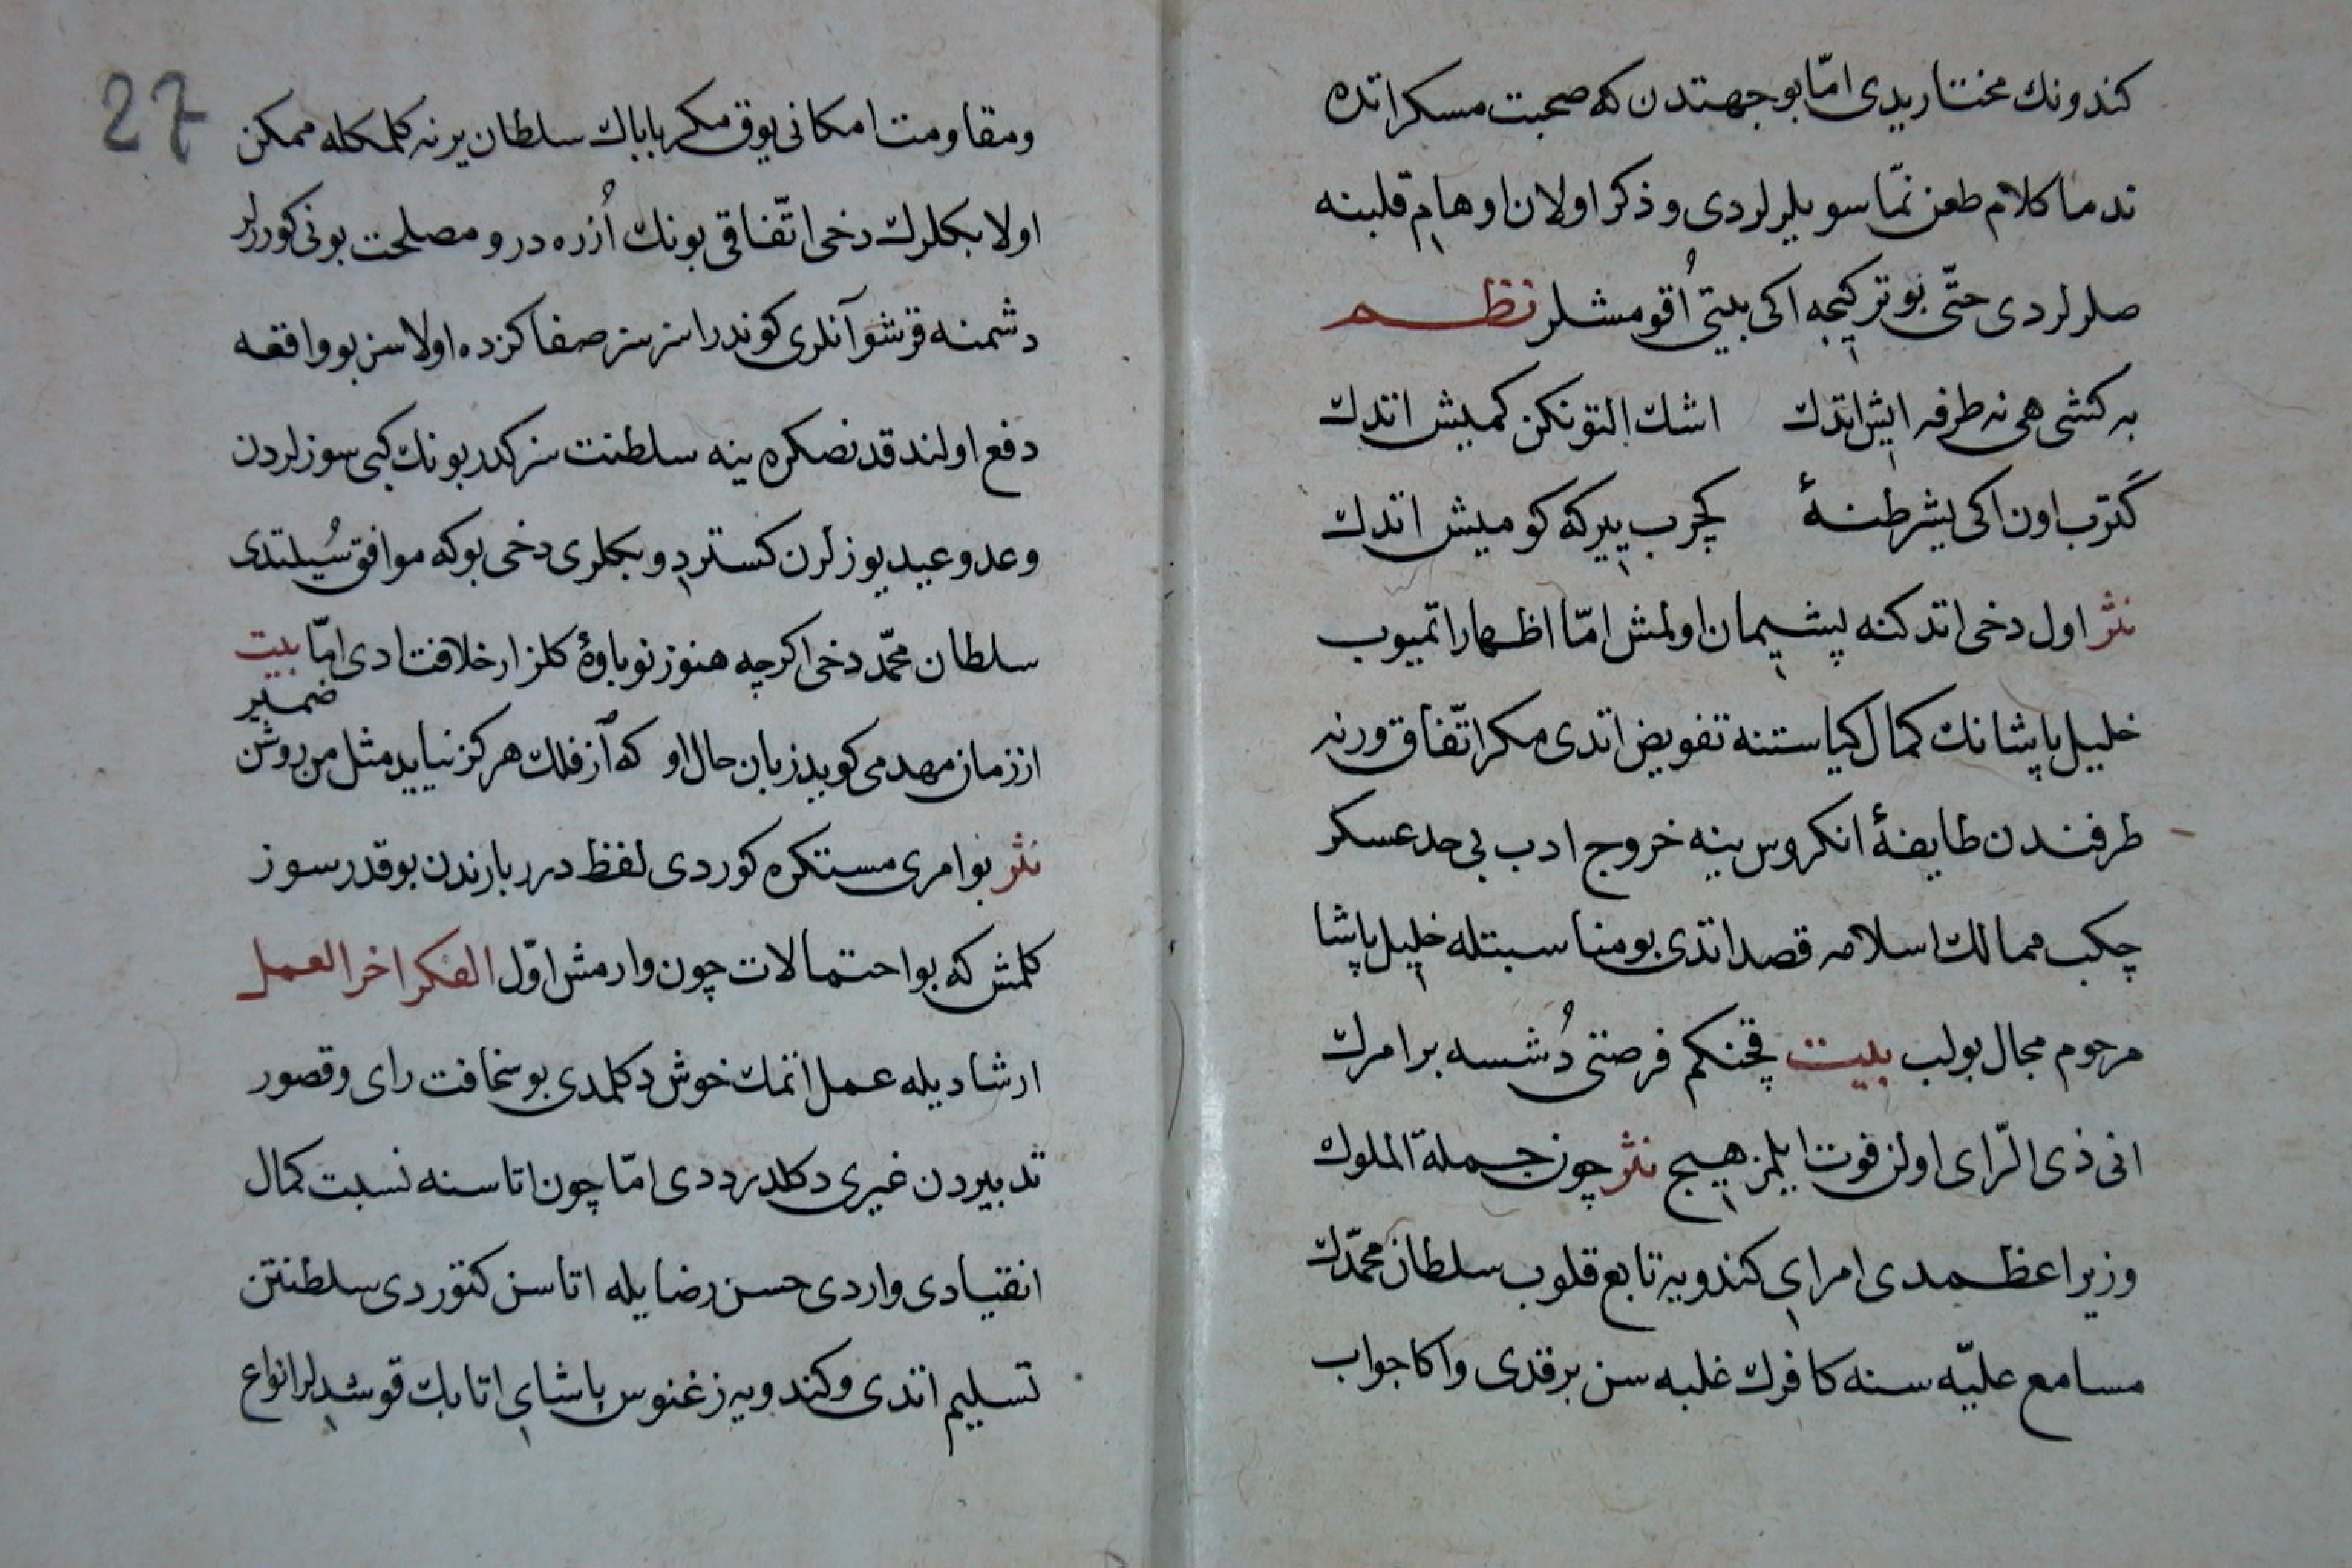 كندونك مختاريدى امّا بو جهتدن كه صحبت مسكراتده
ندما كلام طعن نمّا سويلرلردى و ذكر اولان اوهام قلبينه
صلرلردى حتّى بو تركيجه اكى بيتى اُقومشلر نظم
به كشى هى نه طرفه ايش اتدك اشك التونكن كميش اتدك
كَترب اون اكى يشر طنهٔ كچرب ييركه كوميش اتدك
نثر اول دخى اتدكنه پشيمان اولمش امّا اظهار اتميوب
خليل پاشانك كمال كياستنه تفويض اتدى مكر اتّفاق ورنه
طرفندن طايفهٔ انكروس ينه خروج ادب بى حد عسكر
چكب ممالك اسلامه قصد اتدى بو مناسبتله خليل پاشا
مرحوم مجال بولب بيت قچنكم فرصتى دُشسه بر امرك
انى ذى الرّاى اولن فوت ايلمز هيچ نثر چون جملة الملوك
وزير اعظمدى امراى كندويه تابع قلوب سلطان محمّدك
مسامع عليّه سنه كافرك غلبه سن برقدى و اكا جواب
27
و مقاومت امكانى يوق مكر باباك سلطان يرنه كلمكله ممكن
اولا بكلرك دخى اتّفاقى بونك اُزره در و مصلحت بونى كوررلر
دشمنه قرشو آنلرى كوندراسز سز صفاكزده اولاسز بو واقعه
دفع اولندقدنصكره ينه سلطنت سزكدر بونك كبى سوزلردن
وعد و عيد يوزلرن كستردى و بكلرى دخى بوكه موافق سُيلتدى
سلطان محمّد دخى اكرچه هنوز نوباوهٔ كلزار خلافتدى امّا بيت
از زمان مهد مى كويد زبان حال او كه از فلك هركز نيايد مثل من روشن ضمير
نثر بو امرى مستكره كوردى لفظ درر بارندن بو قدر سوز
كلمش كه بو احتمالات چون وارمش اوّل الفكر اخر العمل
ارشاديله عمل اتمك خوش دكلمدى بو سخافت راى و قصور
تدبيردن غيرى دكلدر ددى امّا چون اتاسنه نسبت كمال
انقيادى واردى حسن رضايله اتاسن كتوردى سلطنتن
تسليم اتدى و كندويه زغنوس پاشاى اتابك قوشدلر انواع